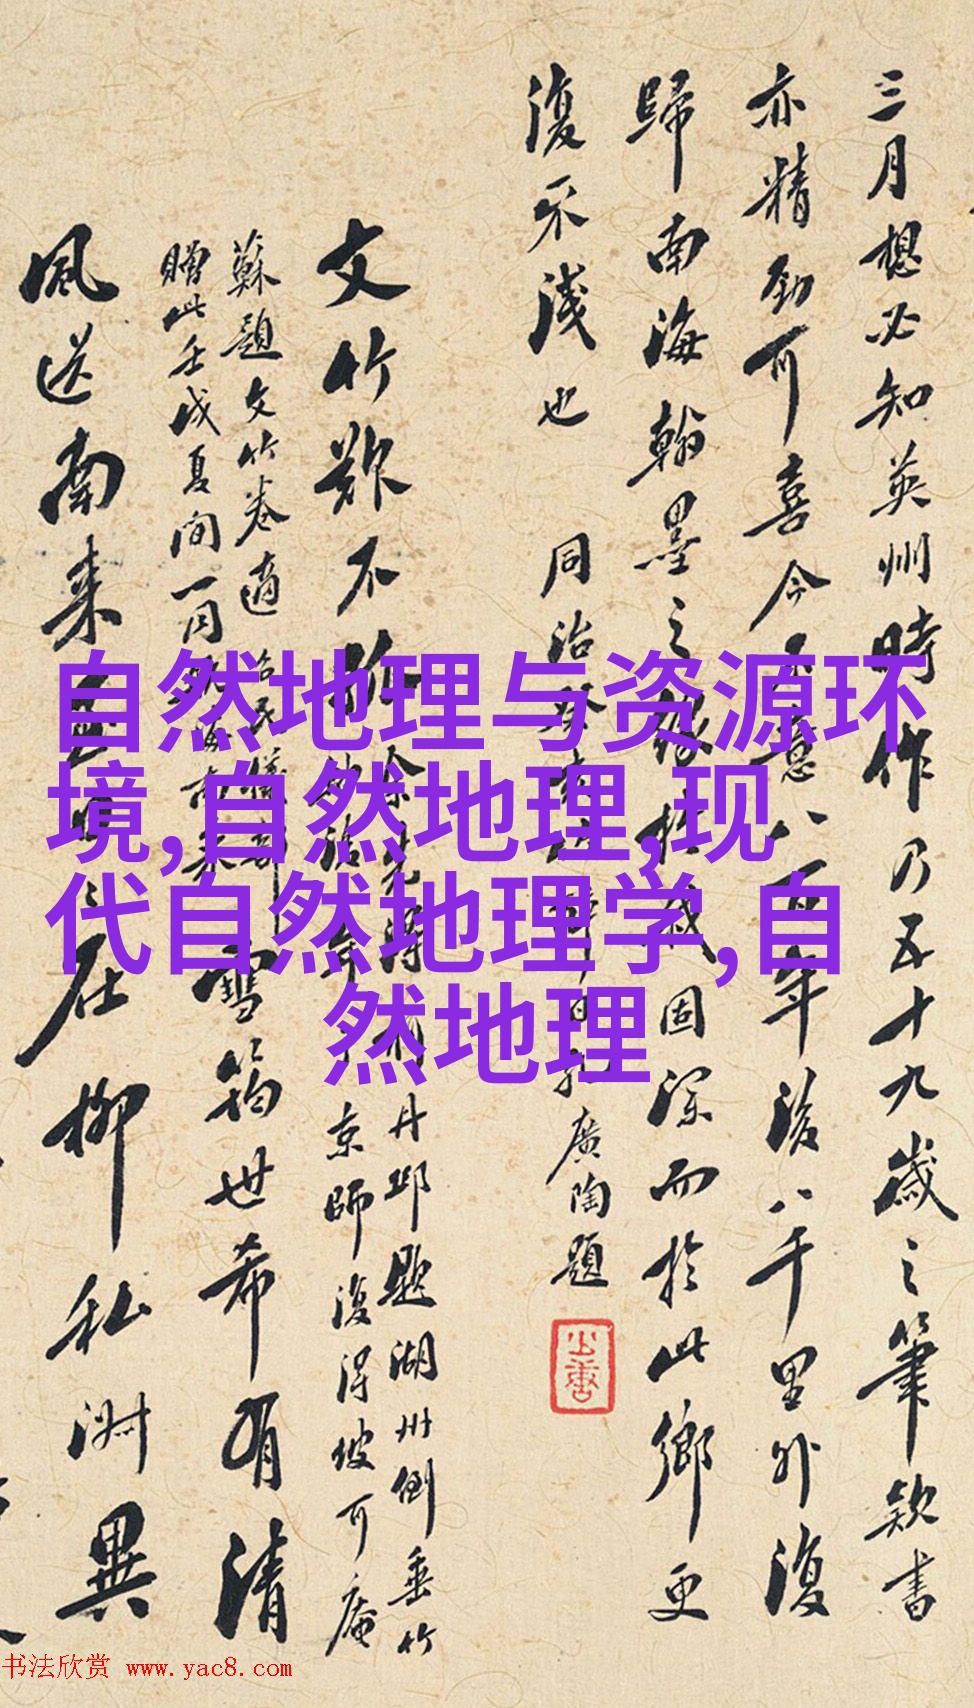 三月想必知英州時作乃五十九歲之筆款書
亦精勁可喜今
八百年後八千里外復
歸南海翰墨之緣
固深而於此鄉更
復不淺也
同治
廣陶題
文竹鄰不孤
蘇題文竹卷適
贈此壬戌夏間一同
丹邱題湖州倒垂竹
京師復得坡可庵
雪筠世希有清
風送南来
在柳私淑異
自然地理与资源环
境,自然地理,现
代自然地理学,自
然地理
书法欣赏 www.yac8.com